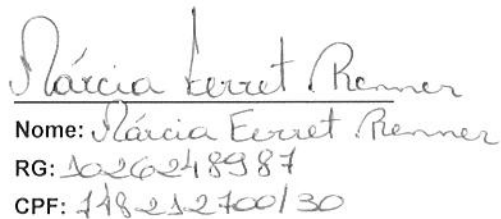 Márcia Ferret Renner
Nome: Márcia Ferret Renner
RG: 1026248987
CPF: 748212700/30